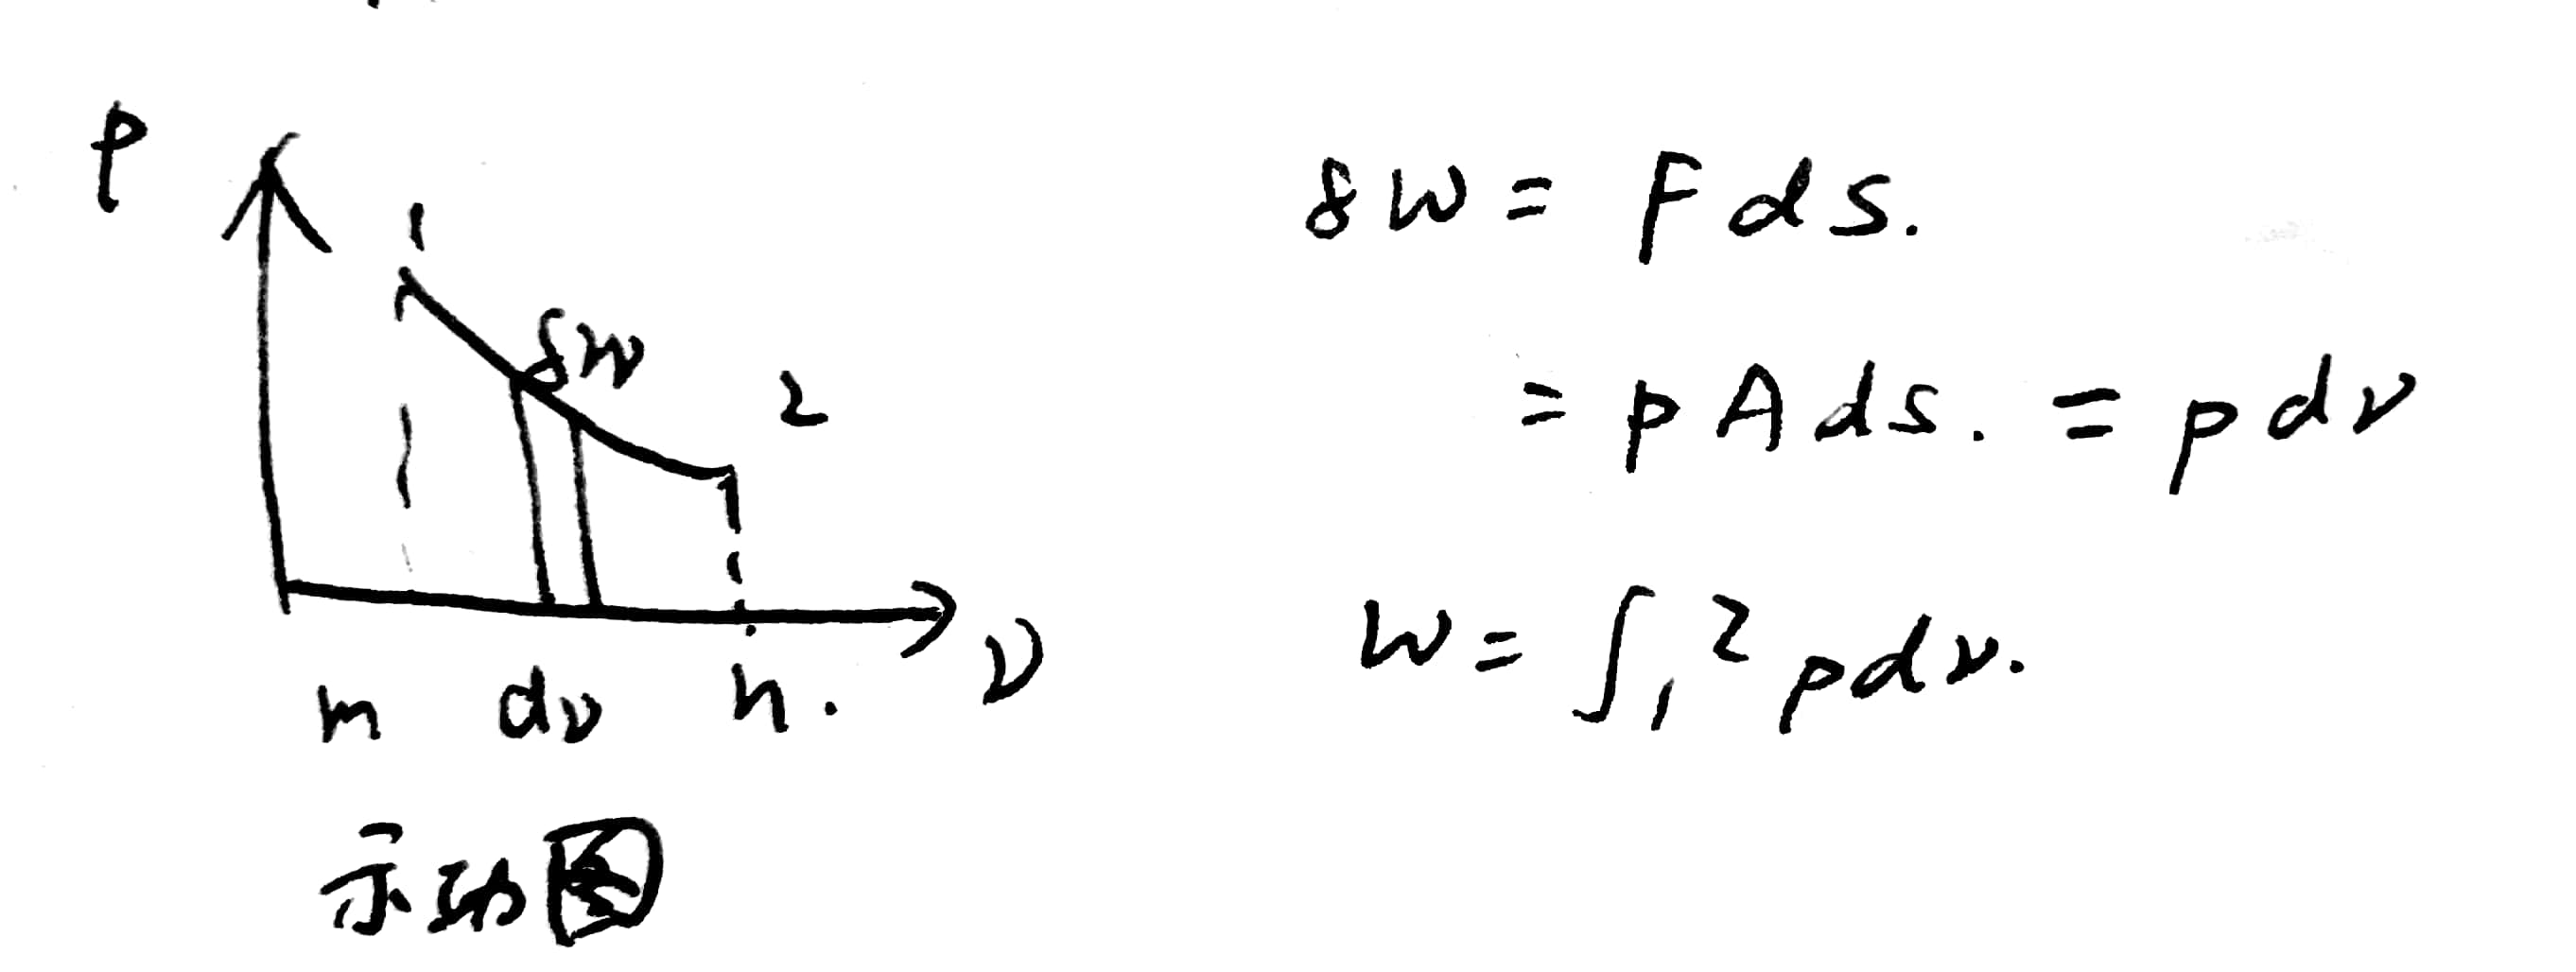 P
1
δW
2
m dv n. v
示功图
δW = F ds.
= p A ds. = p dv
W = ∫₁² p dv.